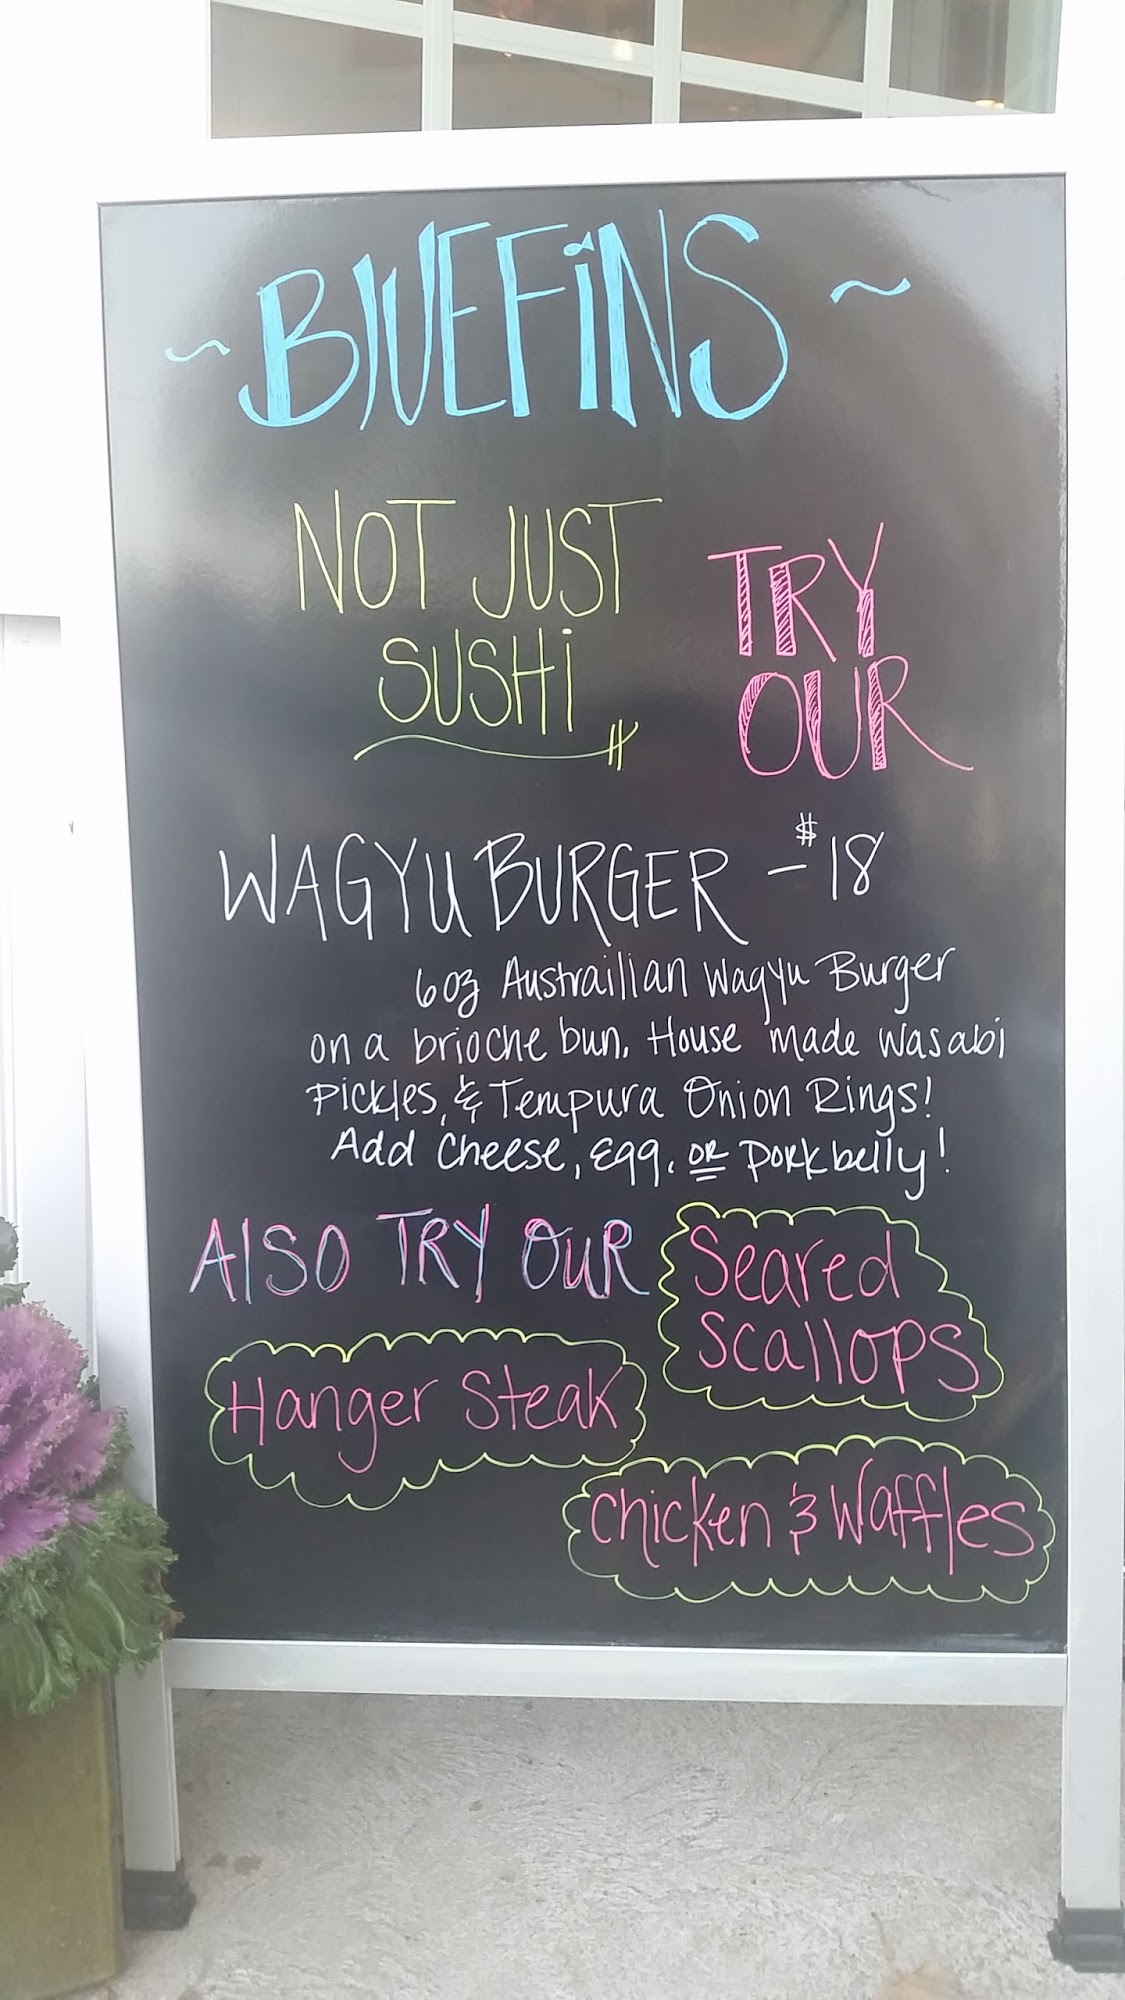 ~ BlUEFiNS ~
NOT JUST
SUSHi
TRY
OUR
WAGYU BURGER - $18
6oz Austrailian Wagyu Burger
on a brioche bun. House made Wasabi
Pickles, & Tempura Onion Rings!
Add Cheese, Egg, OR Porkbelly!
AlSO TRY OUR
Seared
Scallops
Hanger Steak
Chicken & Waffles